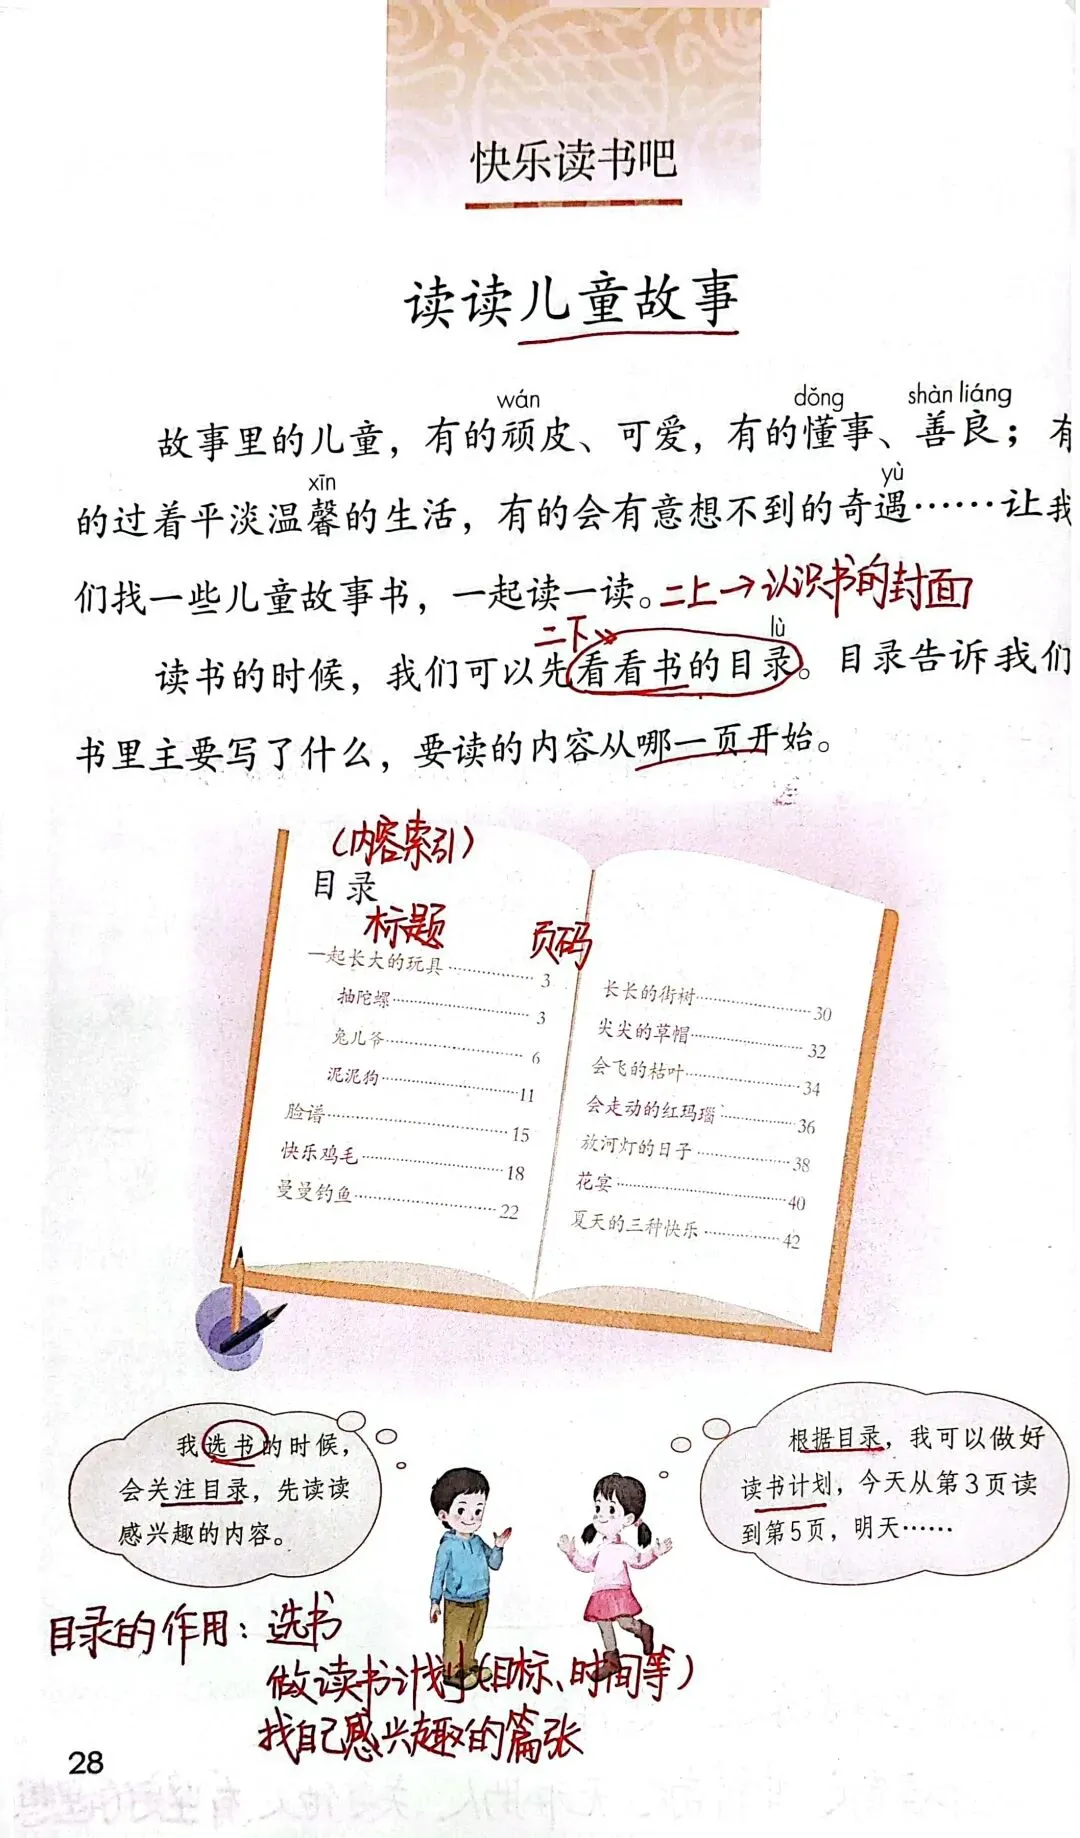 快乐读书吧
读读儿童故事
wán dǒng shàn liáng
故事里的儿童，有的顽皮、可爱，有的懂事、善良；有
xīn yù
的过着平淡温馨的生活，有的会有意想不到的奇遇……让我
们找一些儿童故事书，一起读一读。二上→认识书的封面
二下 lù
读书的时候，我们可以先看看书的目录。目录告诉我们
书里主要写了什么，要读的内容从哪一页开始。
（内容索引）
目录
标题 页码
一起长大的玩具……3
抽陀螺……3
兔儿爷……6
泥泥狗……11
脸谱……15
快乐鸡毛……18
曼曼钓鱼……22
长长的街树……30
尖尖的草帽……32
会飞的枯叶……34
会走动的红玛瑙……36
放河灯的日子……38
花宴……40
夏天的三种快乐……42
我选书的时候，
会关注目录，先读读
感兴趣的内容。
根据目录，我可以做好
读书计划，今天从第3页读
到第5页，明天……
目录的作用：选书
做读书计划（目标、时间等）
找自己感兴趣的篇张
28